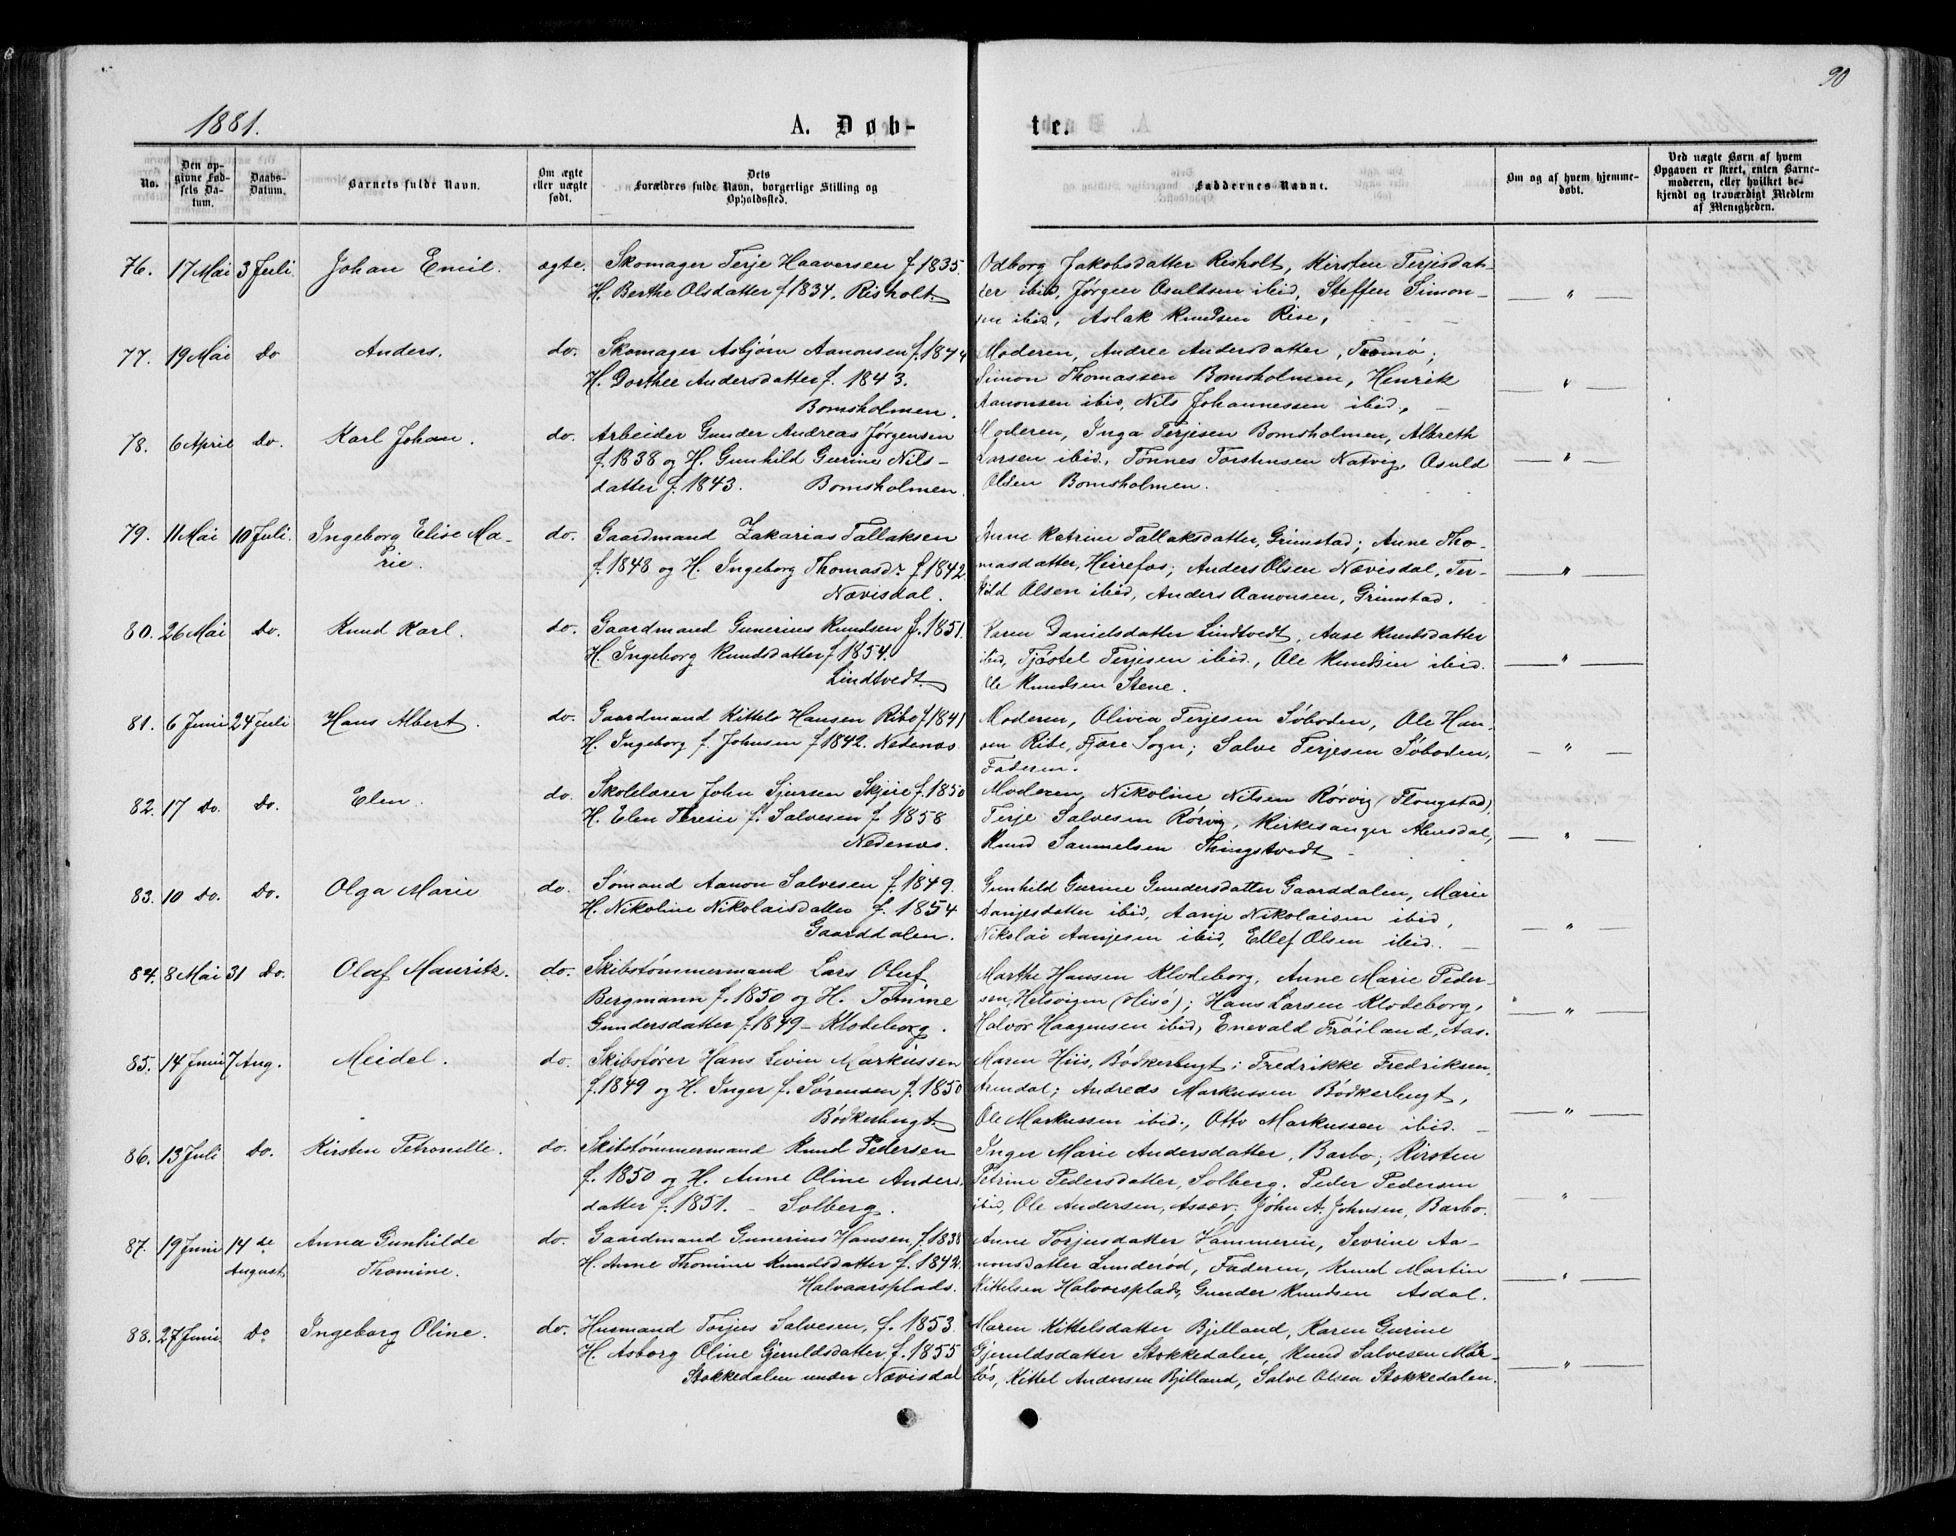 90
1881.
A. Døb-
te.
No.
Den op-
givne Fød-
sels Da-
tum.
Daabs-
Datum.
Barnets fulde Navn.
Om ægte
eller uægte
født.
Dets
Forældres fulde Navn, borgerlige Stilling og
Opholdssted.
Faddernes Navne.
Om og af hvem hjemme-
døbt.
Ved uægte Børn af hvem
Opgaven er skeet, enten Barne-
moderen, eller hvilket be-
kjendt og troværdigt Medlem
af Menigheden.
76. 17 Mai 3 Juli. Johan Emil. ægte. Skomager Terje Haaversen f. 1835
H. Berthe Olsdatter f. 1834. Risholt.
Odborg Jakobsdatter Risholt, Kirsten Terjesdat-
ter ibid, Jørgen Osuldsen ibid, Steffen Simon-
sen ibid, Aslak Knudsen Rise, "
77. 19 Mai Do Anders. do. Skomager Asbjørn Aanonsen f. 1844
H. Dorthee Andersdatter f. 1843.
Bomsholmen.
Moderen, Andree Andersdatter, Tromø;
Simon Thomassen Bomsholmen, Henrik
Aanonsen ibid, Nils Johannessen ibid, "
78. 6 April Do. Karl Johan. do. Arbeider Gunder Andreas Jørgensen
f. 1838 og H. Gunhild Gurine Nils-
datter f. 1843. Bomsholmen.
Moderen, Inga Terjesen Bomsholmen, Albreth
Larsen ibid, Tønnes Torstensen Natvig, Osuld
Olsen Bomsholmen. "
79. 11 Mai 10 Juli. Ingeborg Elise Ma-
rie. do. Gaardmand Zakarias Tallaksen
f. 1848 og H. Ingeborg Thomasdr f. 1842.
Nævisdal.
Anne Katrine Tallaksdatter, Grimstad; Anne Tho-
masdatter, Hirrefos; Anders Olsen Nævisdal, Ter-
kild Olsen ibid, Anders Aanonsen, Grimstad. "
80. 26 Mai Do. Knud Karl. do. Gaardmand Gunerius Knudsen f. 1851.
H. Ingeborg Knudsdatter f. 1854.
Lindtvedt.
Karen Danielsdatter Lindtvedt, Aase Knudsdatter
ibid, Tjøstel Terjesen ibid, Ole Knudsen ibid.
Ole Knudsen Stene. "
81. 6 Juni 24 Juli Hans Albert. do. Gaardmand Kittels Hansen Ribe f. 1841
H. Ingeborg f. Johnsen f. 1842. Nedenæs.
Moderen, Olivia Terjesen Søboden, Ole Han-
sen Ribe, Fjære Sogn; Salve Terjesen Søboden,
Faderen. "
82. 17 Do. Do. Elen. do. Skolelærer John Sjursen Skjeie f. 1850
H. Elen Teresie f. Salvesen f. 1858
Nedenæs.
Moderen, Nikoline Nilsen Rørvig (Flangstad),
Terje Salvesen Rørvig, Kirkesanger Alvesdal,
Knud Samuelsen Thingstvedt "
83. 10 Do. Do. Olga Marie do. Sømand Aanon Salvesen f. 1849.
H. Nikoline Nikolaisdatter f. 1854
Gaarddalen.
Gunhild Gurine Gundersdatter Gaarddalen, Marie
Aanjesdatter ibid, Aanje Nikolaisen ibid,
Nikolai Aanjesen ibid, Ellef Olsen ibid. "
84. 8 Mai 31 Do. Olaf Mauritz. do. Skibstømmermand Lars Oluf
Bergmann f. 1850 og H. Tomine
Gundersdatter f. 1849 - Klodeborg.
Marthe Hansen Klodeborg, Anne Marie Peder-
sen, Helsvigen (Hisø); Hans Larsen Klodeborg,
Halvor Haagensen ibid, Enevald Frøiland, Aas. "
85. 14 Juni 7 Aug. Meidel. do. Skibsfører Hans Levin Markussen
f. 1849 og H. Inger f. Sørensen f. 1850
Bødkerbugt.
Maren Hiis, Bødkerbugt; Fredrikke Fredriksen,
Arendal; Andreas Markussen Bødkerbugt,
Ole Markussen ibid., Otto Markussen ibid. "
86. 13 Juli Do. Kirsten Petronelle. do. Skibstømmermand Knud Pedersen
f. 1850 og H. Anne Oline Anders-
datter f. 1851. - Solberg.
Inger Marie Andersdatter, Barbo; Kirsten
Petrine Pedersdatter, Solberg. Peder Pedersen
ibid, Ole Andersen, Assev; John A. Johnsen, Barbo. "
87. 19 Juni 14de
August Anna Gunhilde
Thomine. do. Gaardmand Gunerius Hansen, f. 1838
H. Anne Thomine Knudsdatter f. 1842.
Halvaarsplads.
Anne Torjusdatter Hammeren, Sevrine Aa-
nonsdatter Lunderød, Faderen, Knud Martin
Kittelsen Halvorsplads, Gunder Knudsen Asdal. "
88. 27 Juni Do Ingeborg Oline. do. Husmand Torjus Salvesen, f. 1853.
H. Asborg Oline Gjeruldsdatter f. 1855
Stokkedalen under Nævisdal
Maren Kittelsdatter Bjelland, Karen Gurine
Gjeruldsdatter Stokkedalen, Knud Salvesen Mør-
fos, Kittel Andersen Bjelland, Salve Olsen Stokkedalen. "